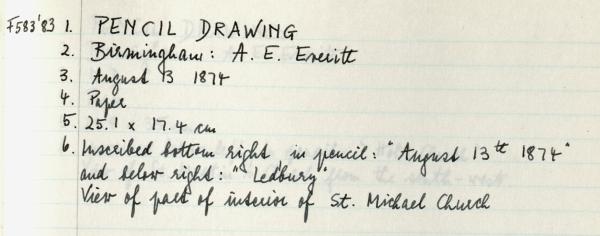 F583'83 1. PENCIL DRAWING
2. Birmingham: A. E. Everitt
3. August 13 1874
4. Paper
5. 25.1 x 17.4 cm
6. Inscribed bottom right in pencil: "August 13th 1874"
and below right: "Ledbury"
View of part of interior of St. Michael Church